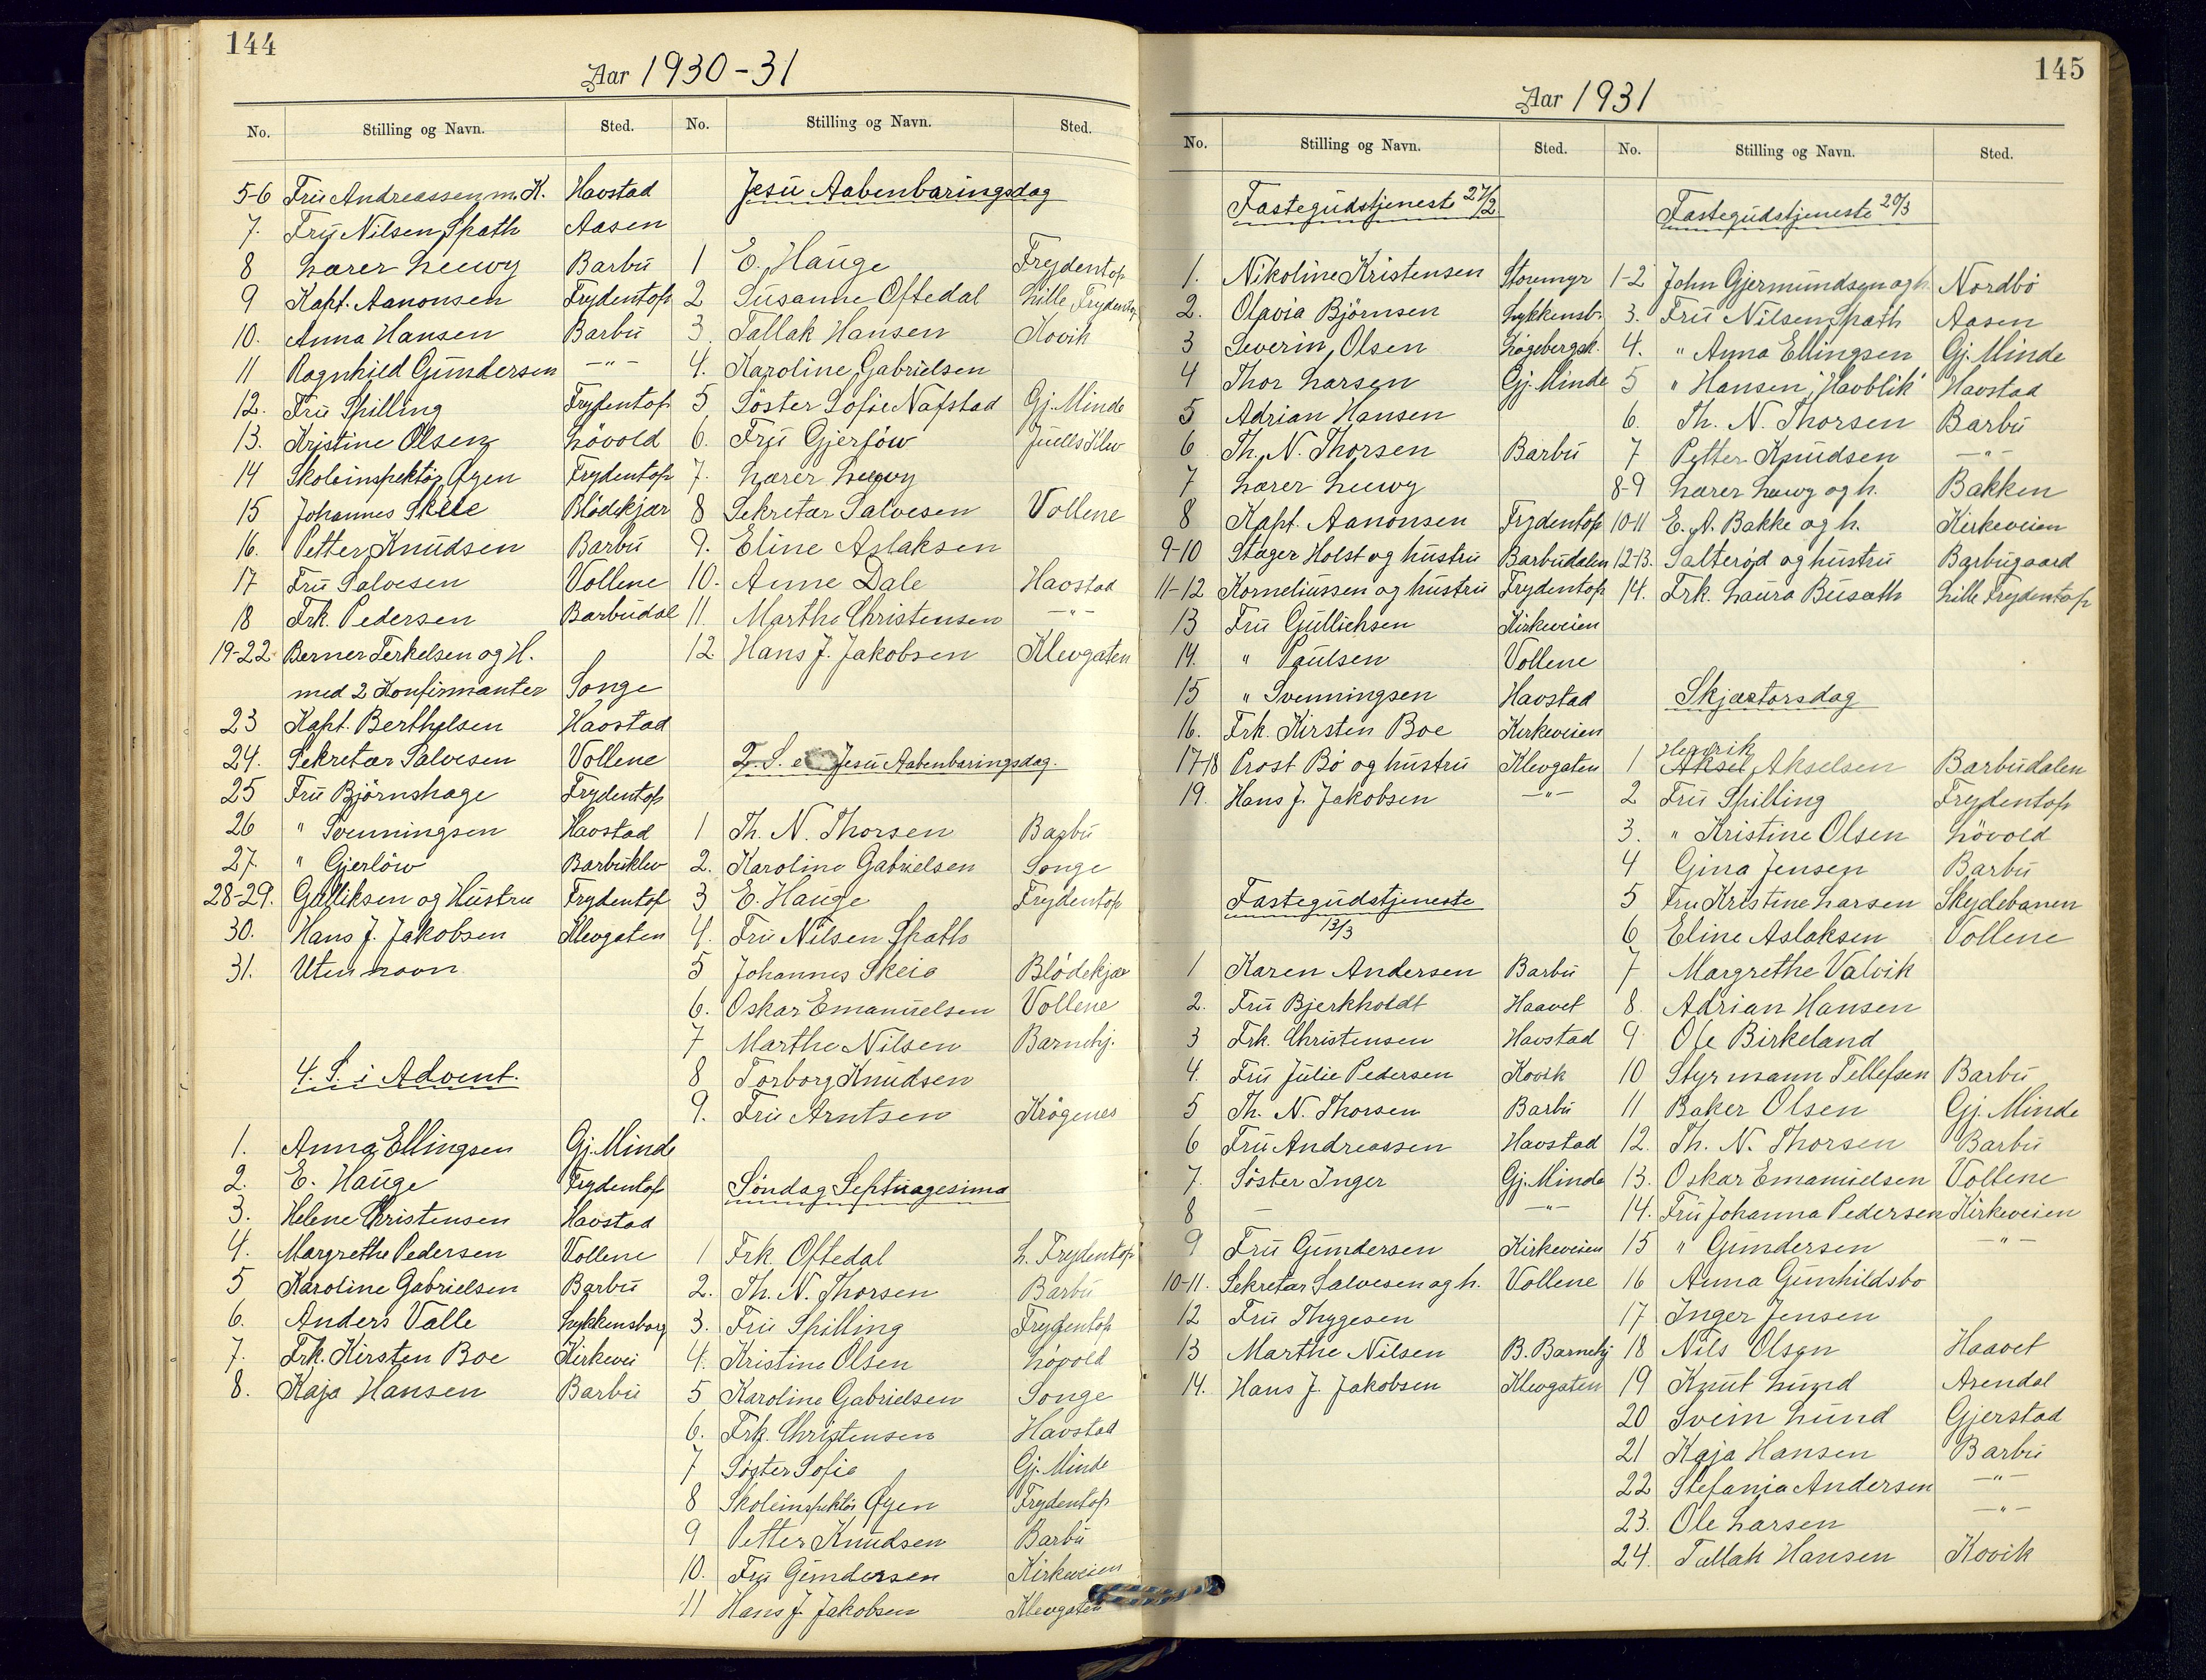 144
Aar 1930-31
No. Stilling og Navn. Sted. No. Stilling og Navn. Sted.
5-6 Fru Andreassen m. K. Havstad
7. Fru Nilsen Spath Aasen
8 Lærer Leewy Barbu
9 Kapt. Aanonsen Frydentop
10. Anna Hansen Barbu
11 Ragnhild Gundersen —"—
12. Fru Spilling Frydentop
13. Kristine Olsen Løvold
14 Skoleinspektør Øyen Frydentop
15 Johannes Skeie Blödekjær
16. Petter Knudsen Barbu
17 Fru Salvesen Vollene
18 Frk. Pedersen Barbudal
19-22 Berner Terkelsen og H.
med 2 Konfirmanter Songe
23 Kapt. Berthelsen Havstad
24. Sekretær Salvesen Vollene
25 Fru Björnshage Frydentop
26 " Svenningsen Havstad
27. " Gjerlöw Barbuklev
28-29. Gulliksen og Hustru Frydentop
30. Hans J. Jakobsen Klevgaten
31. Uten navn
4. S. i Advent.
1. Anna Ellingsen Gj. Minde
2. E. Hauge Frydentop
3. Helene Christensen Havstad
4. Margrethe Pedersen Vollene
5 Karoline Gabrielsen Barbu
6. Anders Valle Lykkensborg
7. Frk. Kirsten Boe Kirkevei
8. Kaja Hansen Barbu
Jesu Aabenbaringsdag
1 E. Hauge Frydentop
2 Susanne Oftedal Lille Frydentop
3 Tallak Hansen Kovik
4. Karoline Gabrielsen
5 Söster Sofie Nafstad Gj. Minde
6. Fru Gjerlöw Juells Klev
7. Lærer Leewy
8 Sekretær Salvesen Vollene
9. Eline Aslaksen
10. Anne Dale Havstad
11. Marthe Christensen —"—
12 Hans J. Jakobsen Klevgaten
2. S. e. Jesu Aabenbaringsdag.
1 Th. N. Thorsen Barbu
2. Karoline Gabrielsen Songe
3 E. Hauge Frydentop
4. Fru Nilsen Spath
5 Johannes Skeie Blödekjær
6. Oskar Emanuelsen Vollene
7 Marthe Nilsen Barnehj.
8 Torborg Knudsen
9. Fru Arntsen Krøgenes
Söndag Septuagesima
1 Frk. Oftedal L. Frydentop
2. Th. N. Thorsen Barbu
3. Fru Spilling Frydentop
4. Kristine Olsen Lövold
5 Karoline Gabrielsen Songe
6. Frk. Christensen Havstad
7 Søster Sofie Gj. Minde
8 Skoleinspektör Øyen Frydentop
9 Petter Knudsen Barbu
10. Fru Gundersen Kirkeveien
11 Hans J. Jakobsen Klevgaten
145
Aar 1931
No. Stilling og Navn. Sted. No. Stilling og Navn. Sted.
Fastegudstjeneste 27/2
1. Nikoline Kristensen Storemyr
2. Olavia Björnsen Lykkensb.
3 Severin Olsen Løgebergsk.
4 Thor Larsen Gj. Minde
5 Adrian Hansen
6 Th. N. Thorsen Barbu
7 Lærer Leewy
8 Kapt. Aanonsen Frydentop
9-10 Stuger Holst og hustru Barbudalen
11-12 Korneliussen og hustru Frydentop
13 Fru Gullichsen Kirkeveien
14. " Paulsen Vollene
15 " Svenningsen Havstad
16. Frk. Kirsten Boe Kirkeveien
17-18 Prost Bö og hustru Klevgaten
19. Hans J. Jakobsen —"—
Fastegudstjeneste
13/3
1 Karen Andersen Barbu
2. Fru Bjerkholdt Haavet
3 Frk. Christensen Havstad
4. Fru Julie Pedersen Kovik
5 Th. N. Thorsen Barbu
6 Fru Andreassen Havstad
7. Söster Inger Gj. Minde
8 — —"—
9 Fru Gundersen Kirkeveien
10-11. Sekretær Salvesen og h. Vollene
12 Fru Thygesen
13 Marthe Nilsen B. Barnehj
14. Hans J. Jakobsen Klevgaten
Fastegudstjeneste 20/3
1-2 John Gjermundsen og h. Nordbö
3. Fru Nilsen Spath Aasen
4. " Anna Ellingsen Gj. Minde
5 " Hansen "Havblik" Havstad
6. Th. N. Thorsen Barbu
7 Petter Knudsen —"—
8-9 Lærer Leewy og h. Bakken
10-11 E. A. Bakke og h. Kirkeveien
12-13. Salterød og hustru Barbugaard
14. Frk. Laura Busath Lille Frydentop
Skjærtorsdag
Henrik
1 Aksel Akselsen Barbudalen
2 Fru Spilling Frydentop
3. " Kristine Olsen Lövold
4 Gina Jensen Barbu
5 Fru Kristine Larsen Skydebanen
6 Eline Aslaksen Vollene
7 Margrethe Valvik
8. Adrian Hansen
9. Ole Birkeland
10 Styrmann Tellefsen Barbu
11 Baker Olsen Gj. Minde
12. Th. N. Thorsen Barbu
13. Oskar Emanuelsen Vollene
14. Fru Johanna Pedersen Kirkeveien
15 " Gundersen —"—
16 Anna Gunhildsbo
17 Inger Jensen
18 Nils Olsen Haavet
19 Knut Lund Arendal
20 Svein Lund Gjerstad
21 Kaja Hansen Barbu
22 Stefania Andersen —"—
23. Ole Larsen —"—
24. Tallak Hansen Kovik